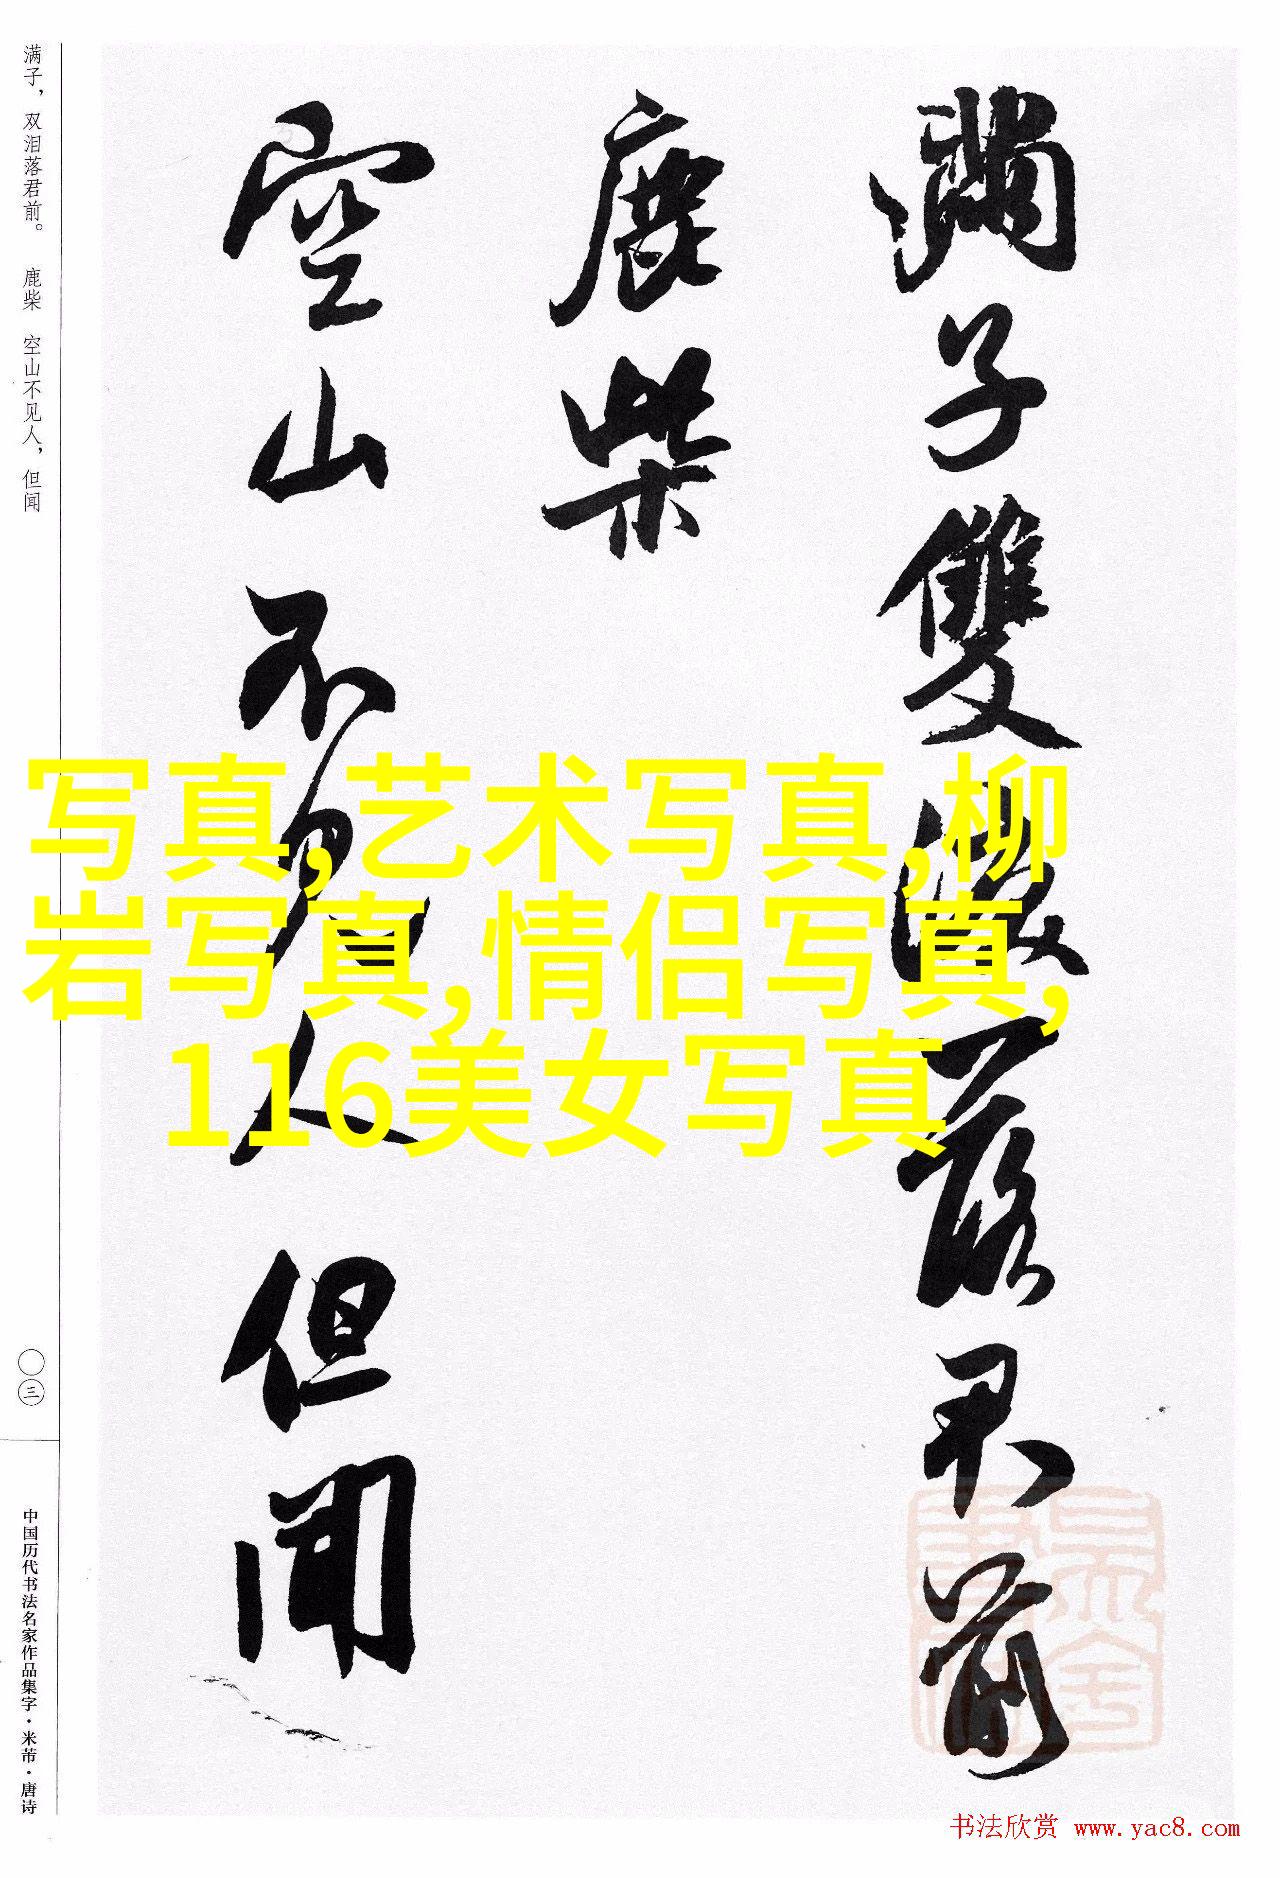 满子，双泪落君前。 鹿柴 空山不见人，但闻
滿子雙淚落君前
鹿柴
空山不見人但聞
写真,艺术写真,柳
岩写真,情侣写真,
116美女写真
〇三
中国历代书法名家作品集字·米芾·唐诗
书法欣赏 www.yac8.com